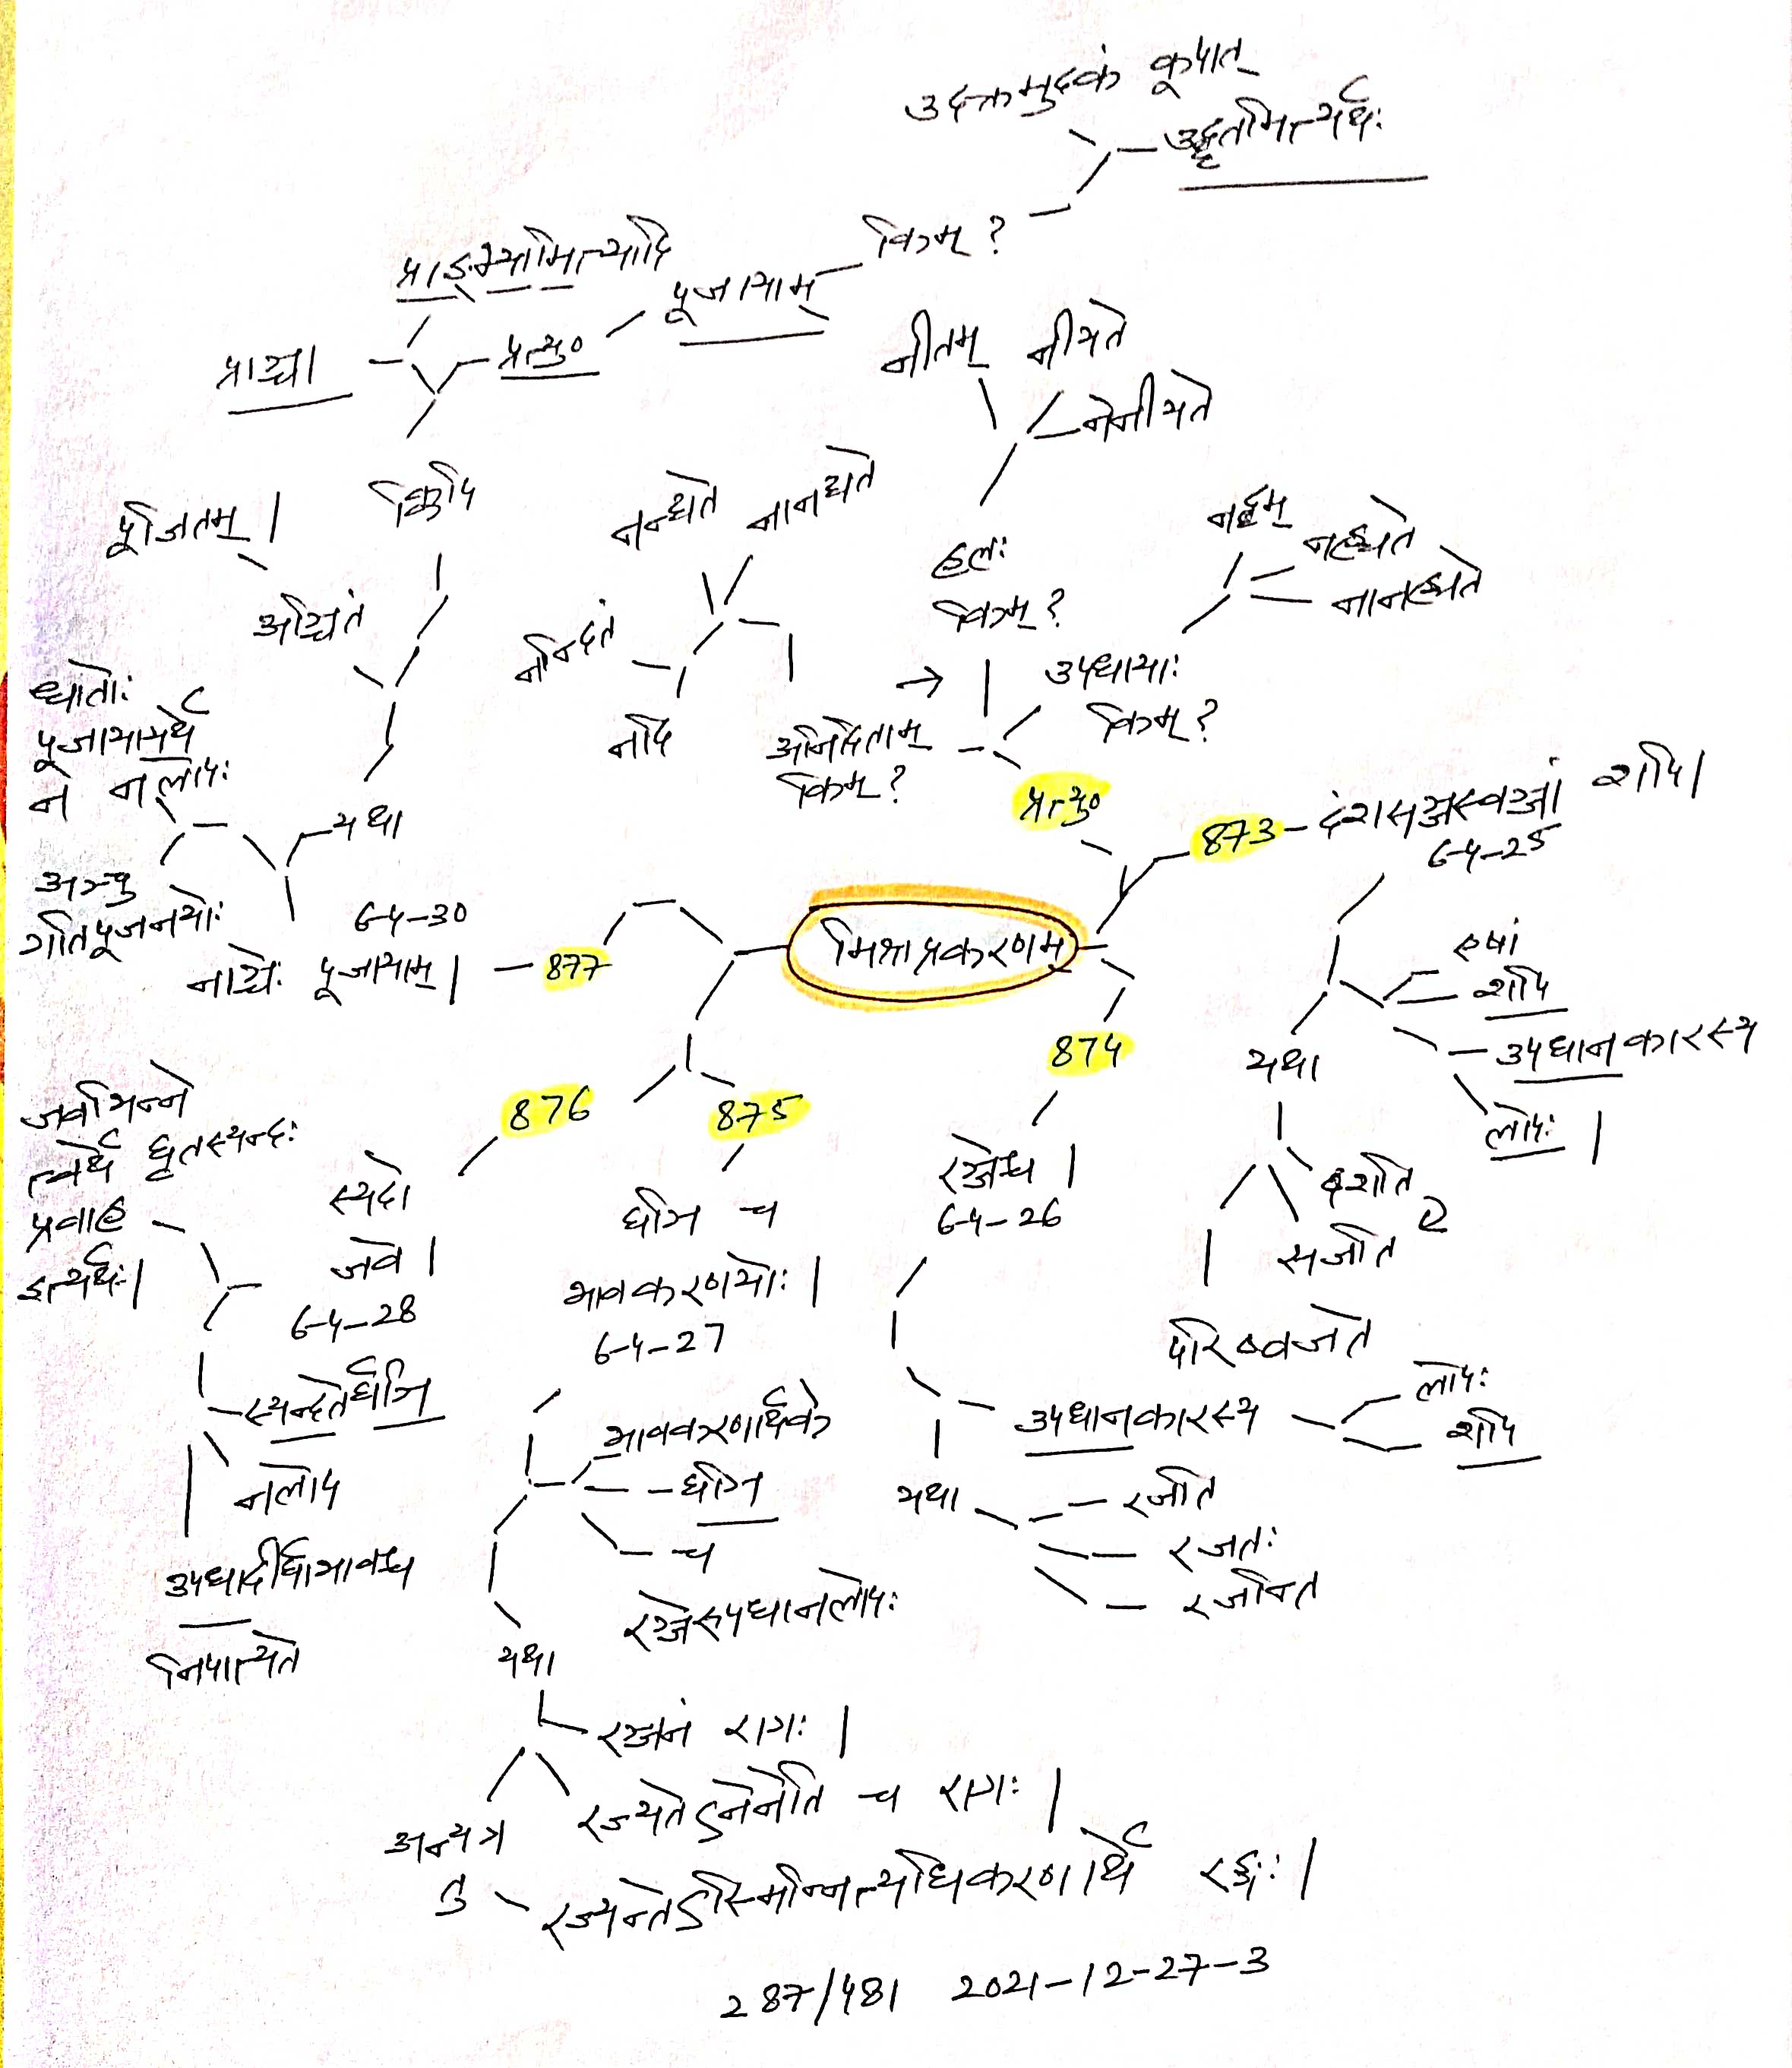 उदक्तमुदकं कूपात्
उद्धृतमित्यर्थः
किम् ?
प्राङ्भ्यामित्यादि
पूजायाम्
प्राञ्चा
प्रत्यु०
नीतम् नीयते
नेनीयते
क्विपि
पूजितम् ।
अञ्चितं
नन्द्यते नानन्द्यते
नन्दितं
नदि
हलः
किम् ?
नद्धम्
नह्यते
नानह्यते
→
उपधायाः
किम् ?
अनिदिताम्
किम् ?
प्रत्यु०
धातोः
पूजायामर्थे
न नलोपः
यथा
अञ्चु
गतिपूजनयोः
6-4-30
नाञ्चेः पूजायाम् । - 877
मिश्रप्रकरणम्
873 - दंशसञ्जस्वञ्जां शपि ।
6-4-25
एषां
शपि
उपधानकारस्य
लोपः ।
यथा
दशति
सजति
परिष्वजते
874
रञ्जेश्च ।
6-4-26
उपधानकारस्य
लोपः
शपि
यथा
रजति
रजतः
रजन्ति
875
घञि च
भावकरणयोः ।
6-4-27
भावकरणार्थके
घञि
च
रञ्जेरुपधानलोपः
यथा
रञ्जनं रागः ।
रज्यतेऽनेनेति च रागः ।
अन्यत्र
तु
रज्यन्तेऽस्मिन्नित्यधिकरणार्थे रङ्गः ।
876
स्यदो
जवे ।
6-4-28
जवाभिन्ने
त्वर्थे घृतस्यन्दः
प्रवाह
इत्यर्थः ।
स्यन्दतेर्घञि
नलोप
उपधादीर्घाभावश्च
निपात्यते
287/481 2021-12-27-3